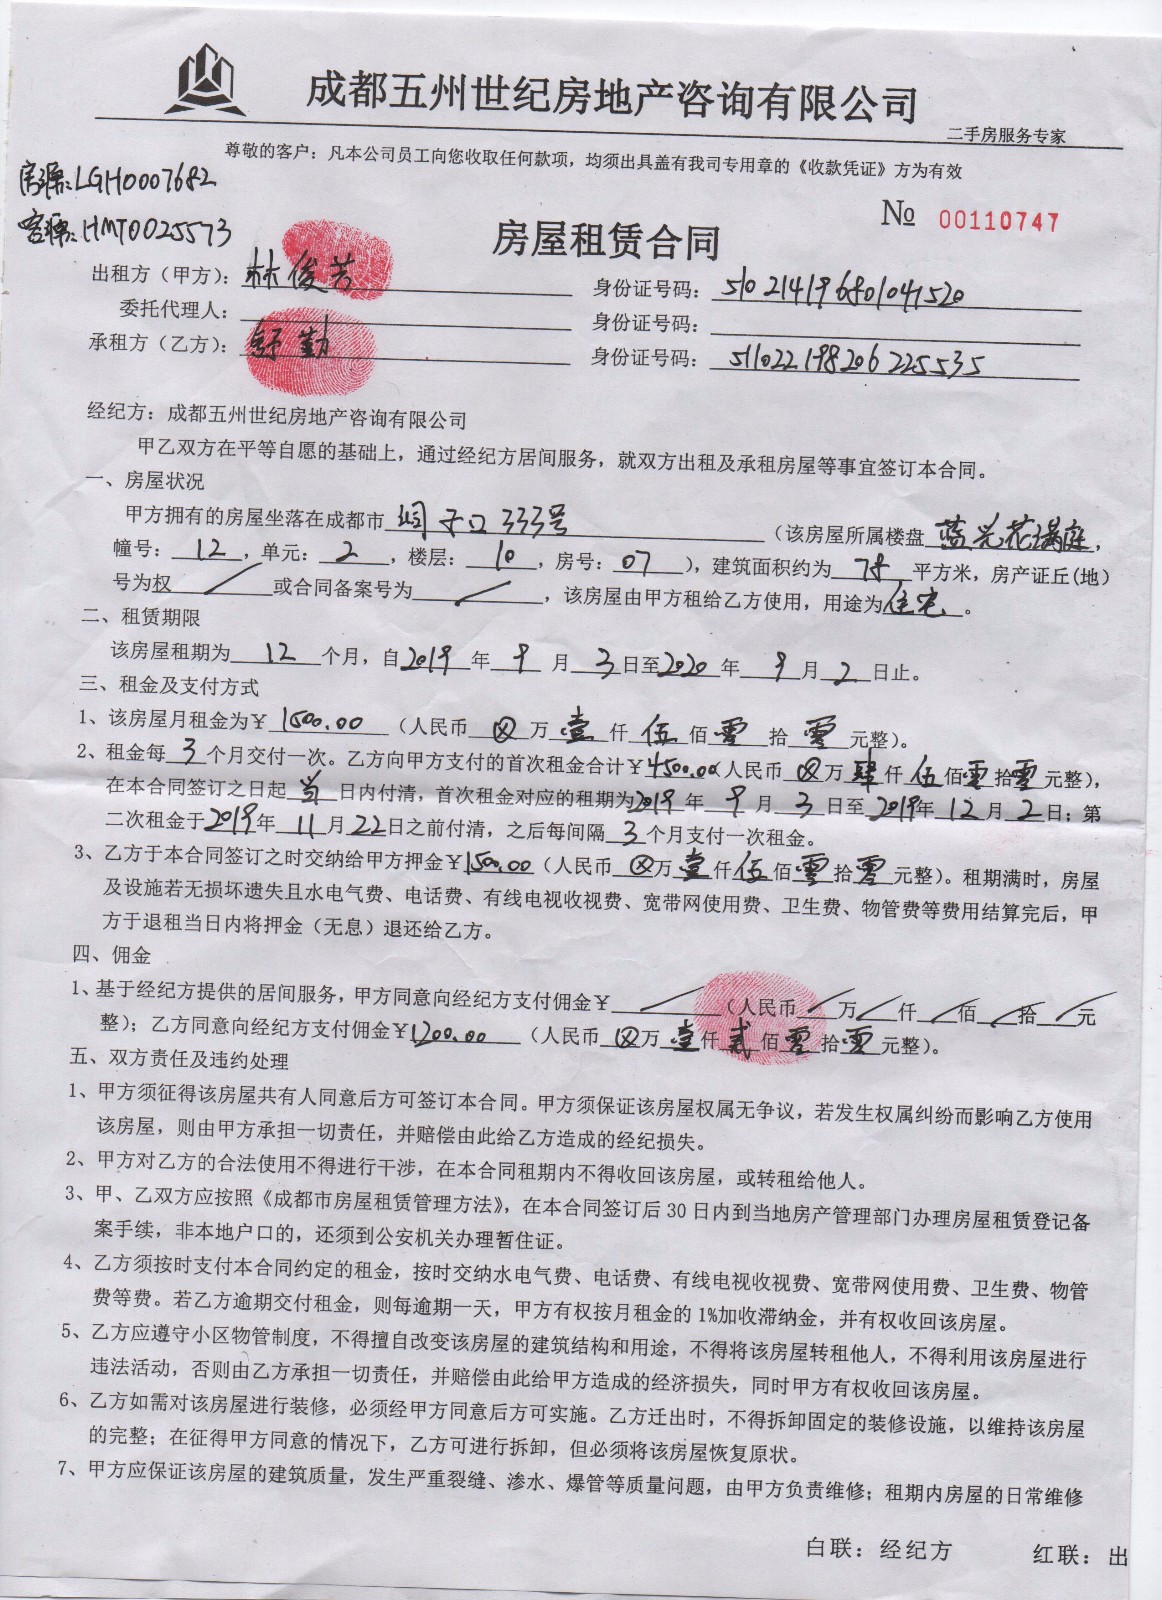 成都五州世纪房地产咨询有限公司
二手房服务专家
尊敬的客户：凡本公司员工向您收取任何款项，均须出具盖有我司专用章的《收款凭证》方为有效
房源：LGH0007682
客源：HMT0025573
№ 00110747
房屋租赁合同
出租方（甲方）：林俊芳 身份证号码：510214196801041520
委托代理人： 身份证号码：
承租方（乙方）：舒勤 身份证号码：511022198206225535
经纪方：成都五州世纪房地产咨询有限公司
甲乙双方在平等自愿的基础上，通过经纪方居间服务，就双方出租及承租房屋等事宜签订本合同。
一、房屋状况
甲方拥有的房屋坐落在成都市 子口333号（该房屋所属楼盘蓝光花满庭，
幢号：12，单元：2，楼层：10，房号：07），建筑面积约为78平方米，房产证丘(地)
号为权／或合同备案号为／，该房屋由甲方租给乙方使用，用途为住宅。
二、租赁期限
该房屋租期为12个月，自2019年9月3日至2020年9月2日止。
三、租金及支付方式
1、该房屋月租金为￥1500.00（人民币⊗万壹仟伍佰零拾零元整）。
2、租金每3个月交付一次。乙方向甲方支付的首次租金合计￥4500.00（人民币⊗万肆仟伍佰零拾零元整），
在本合同签订之日起当日内付清，首次租金对应的租期为2019年9月3日至2019年12月2日；第
二次租金于2019年11月22日之前付清，之后每间隔3个月支付一次租金。
3、乙方于本合同签订之时交纳给甲方押金￥1500.00（人民币⊗万壹仟伍佰零拾零元整）。租期满时，房屋
及设施若无损坏遗失且水电气费、电话费、有线电视收视费、宽带网使用费、卫生费、物管费等费用结算完后，甲
方于退租当日内将押金（无息）退还给乙方。
四、佣金
1、基于经纪方提供的居间服务，甲方同意向经纪方支付佣金￥／（人民币／万／仟／佰／拾／元
整）；乙方同意向经纪方支付佣金￥1200.00（人民币⊗万壹仟贰佰零拾零元整）。
五、双方责任及违约处理
1、甲方须征得该房屋共有人同意后方可签订本合同。甲方须保证该房屋权属无争议，若发生权属纠纷而影响乙方使用
该房屋，则由甲方承担一切责任，并赔偿由此给乙方造成的经纪损失。
2、甲方对乙方的合法使用不得进行干涉，在本合同租期内不得收回该房屋，或转租给他人。
3、甲、乙双方应按照《成都市房屋租赁管理方法》，在本合同签订后30日内到当地房产管理部门办理房屋租赁登记备
案手续，非本地户口的，还须到公安机关办理暂住证。
4、乙方须按时支付本合同约定的租金，按时交纳水电气费、电话费、有线电视收视费、宽带网使用费、卫生费、物管
费等费。若乙方逾期交付租金，则每逾期一天，甲方有权按月租金的1%加收滞纳金，并有权收回该房屋。
5、乙方应遵守小区物管制度，不得擅自改变该房屋的建筑结构和用途，不得将该房屋转租他人，不得利用该房屋进行
违法活动，否则由乙方承担一切责任，并赔偿由此给甲方造成的经济损失，同时甲方有权收回该房屋。
6、乙方如需对该房屋进行装修，必须经甲方同意后方可实施。乙方迁出时，不得拆卸固定的装修设施，以维持该房屋
的完整；在征得甲方同意的情况下，乙方可进行拆卸，但必须将该房屋恢复原状。
7、甲方应保证该房屋的建筑质量，发生严重裂缝、渗水、爆管等质量问题，由甲方负责维修；租期内房屋的日常维修
白联：经纪方 红联：出